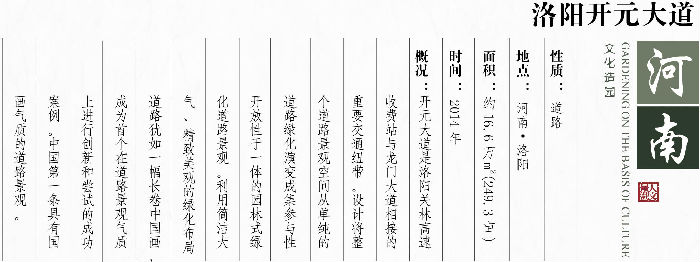 洛阳开元大道
河南
文化造园
GARDENING ON THE BASIS OF CULTURE
性质：道路
地点：河南·洛阳
面积：约 16.6 万/m²(249.3 亩)
时间：2014 年
概况：开元大道是洛阳关林高速
收费站与龙门大道相接的
重要交通纽带。设计将整
个道路景观空间从单纯的
道路绿化演变成集参与性
开放性于一体的园林式绿
化道路景观。利用简洁大
气、精致美观的绿化布局
道路犹如一幅长卷中国画，
成为首个在道路景观气质
上进行创新和尝试的成功
案例。中国第一条具有国
画气质的道路景观。